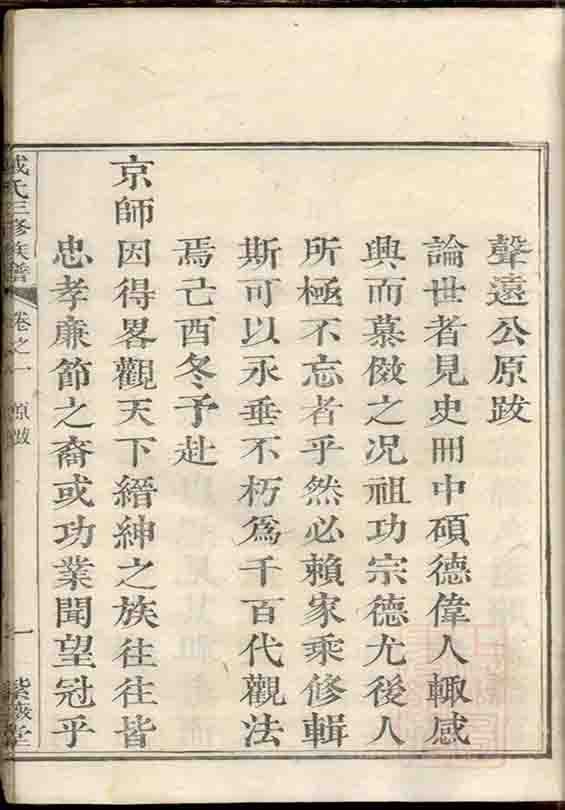 聲遠公原跋
論世者見史冊中碩德偉人輙感
興而慕傚之况祖功宗德尤後人
所極不忘者乎然必賴家乘修輯
斯可以永垂不朽爲千百代觀法
焉己酉冬予赴
京師因得畧觀天下縉紳之族往往皆
忠孝廉節之裔或功業聞望冠乎
氏三修族譜 卷之一 原跋 一 紫薇堂